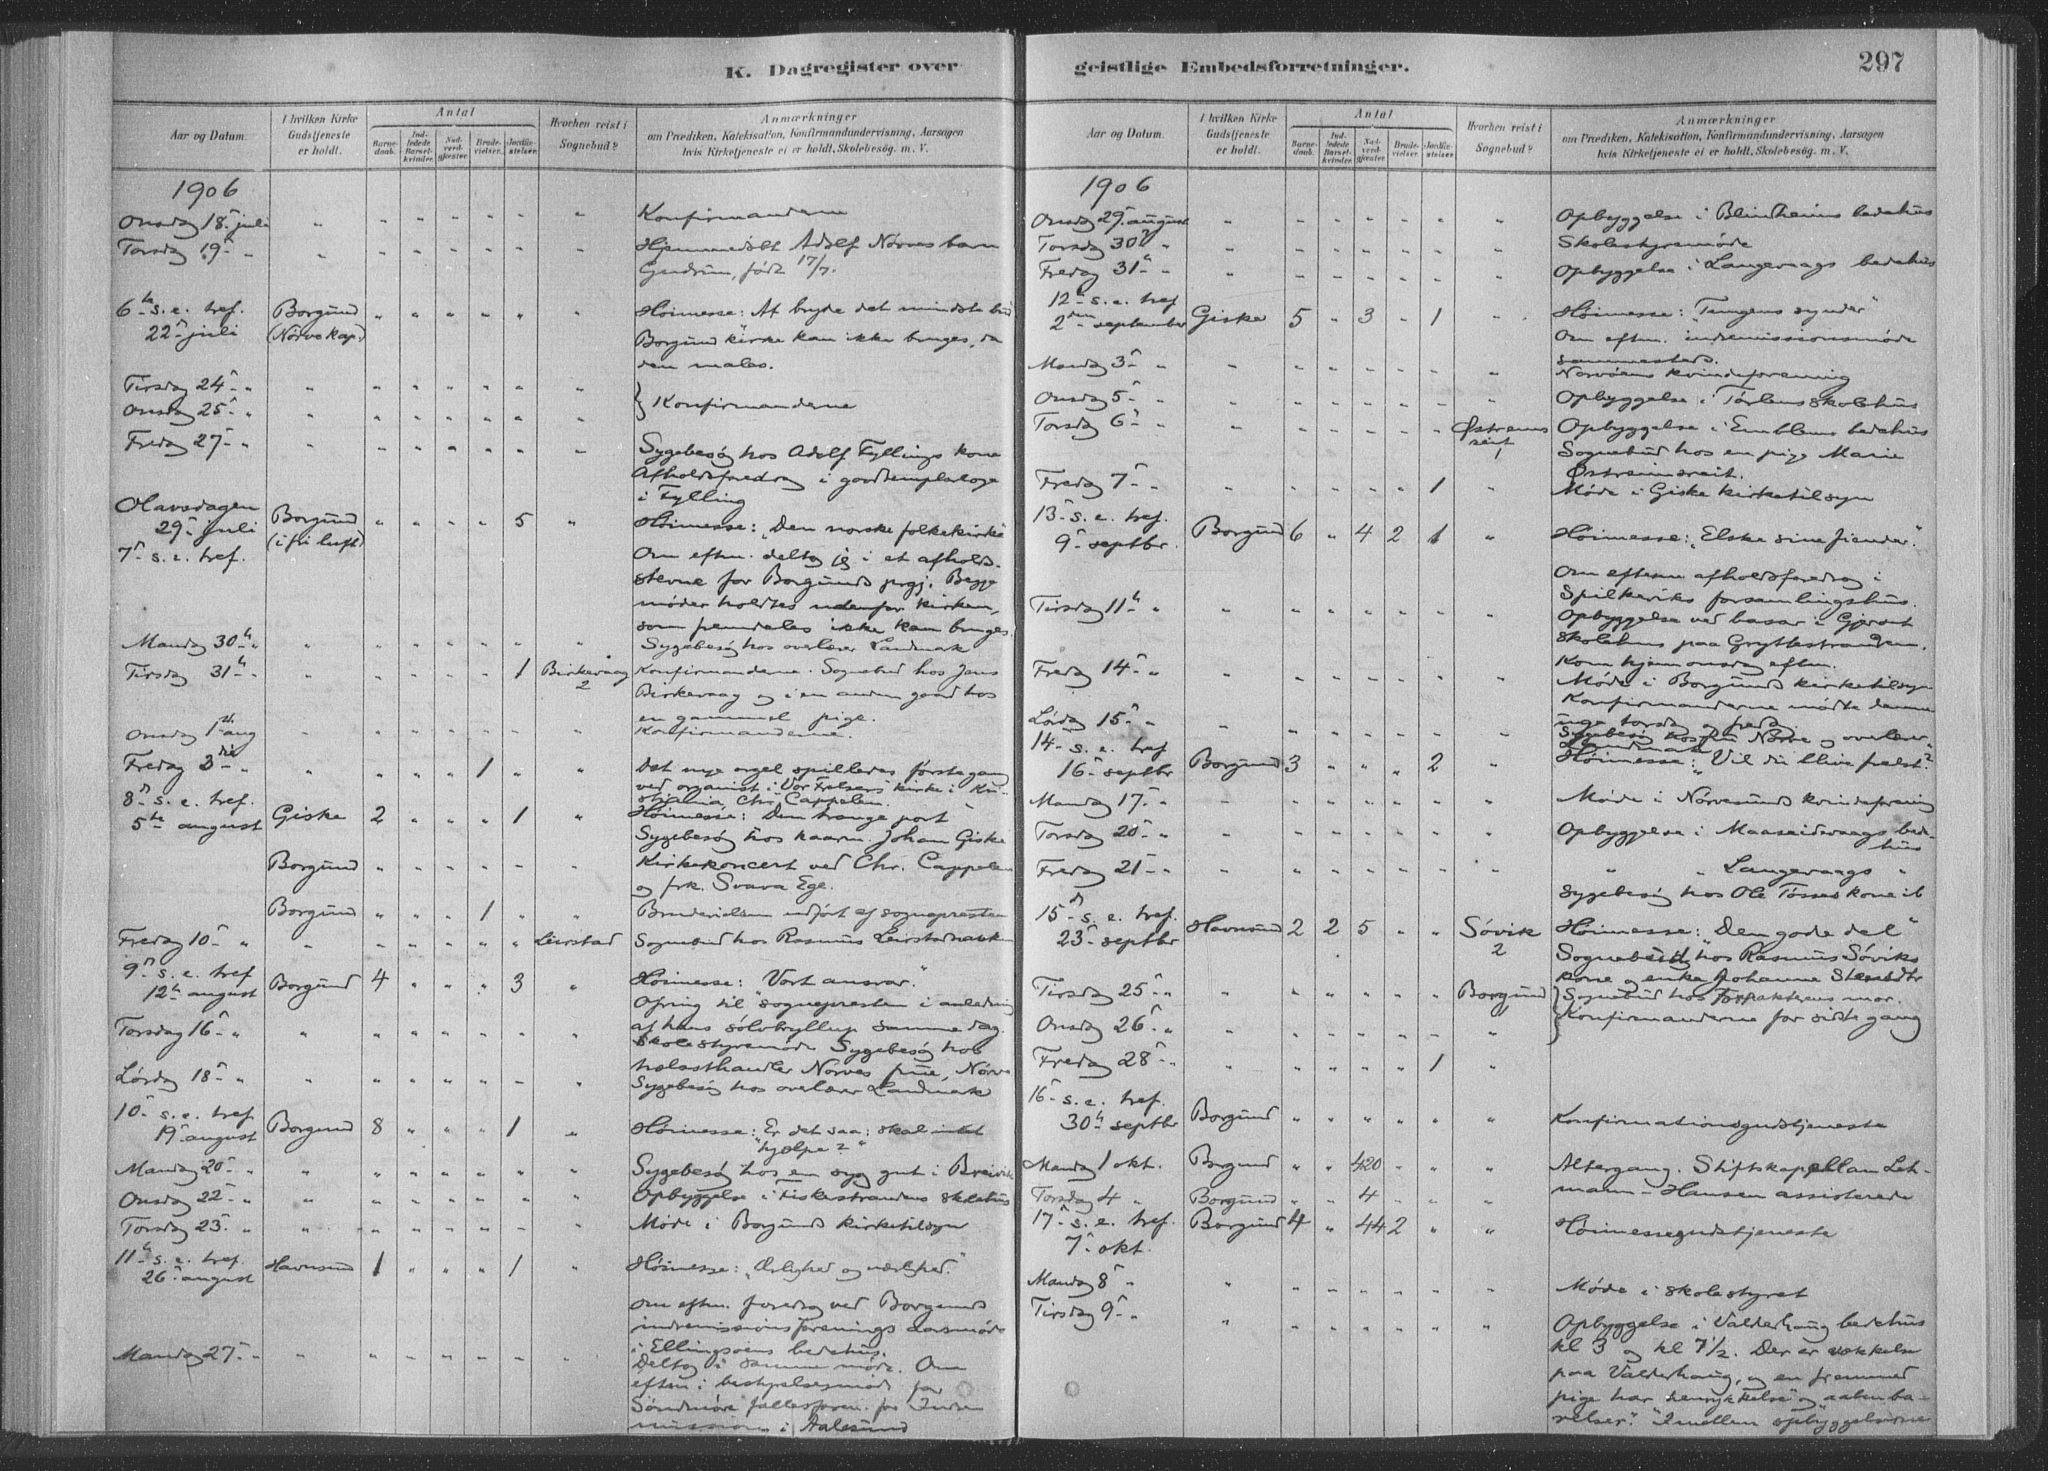 K. Dagregister over
Aar og Datum.
I hvilken Kirke Gudstjeneste er holdt.
Antal
Barnedaab.
Indledede Barselkvinder.
Nadverdgjester.
Brudevielser.
Jordfæstelser.
Hvorhen reist i Sognebud?
Anmærkninger
om Prædiken, Katekisation, Konfirmandundervisning, Aarsagen
hvis Kirketjeneste ei er holdt, Skolebesøg. m. V.
1906
Onsdag 18. juli Konfirmanderne
Torsdag 19. " Hjemmedøbt Adolf Nørves barn
Gudrun, født 17/7.
6te s. e. tref. Borgund Høimesse: At bryde det mindste bud
22. juli (Nørve kap.) Borgund kirke kan ikke bruges, da
den males.
Tirsdag 24. "
Onsdag 25. " } Konfirmanderne
Fredag 27. " Sygebesøg hos Adolf Fyllings kone
Afholdsforedrag i goodtemplarloge
i Fylling
Olavsdagen Borgund 5 Høimesse: "Den norske folkekirke"
29. juli (i fri luft)
7. s. e. tref. Om eftm. deltog jeg i et afholds-
stevne for Borgunds prgj. Begge
møder holdtes udenfor kirken,
som fremdeles ikke kan bruges.
Mandag 30. " Sygebesøg hos overlærer Landmark
Tirsdag 31. " 1 Birkevaag 2 Konfirmanderne. Sognebud hos Jens
Birkevaag og i en anden gaard hos
en gammel pige.
Onsdag 1ste aug Konfirmanderne.
Fredag 3die " 1 Det nye orgel spilledes første gang
ved organist i Vor Frelsers kirke i Kri-
stiania, Chr. Cappelen.
8. s. e. tref. Giske 2 1 Høimesse: Den trange port
5te august Sygebesøg hos haarn. Johan Giske
Borgund Kirkekoncert ved Chr. Cappelen
og frk. Svava Ege.
Borgund 1 Brudevielsen udført af sognepresten
Fredag 10. " Leirstad Sognebud hos Rasmus Leirstad
9. s. e. tref Borgund 4 3 Høimesse: "Vort ansvar."
12te august Opring til sognepresten i anledning
af hans sølvbryllup samme dag.
Torsdag 16. " Skolestyremøde Sygebesøg hos
Nørves frue, Nørve
Lørdag 18. " Sygebesøg hos overlærer Landmark
10. s. e. tref Borgund 8 1 Høimesse: Er det saa: skal intet
19. august "hjelpe?"
Mandag 20. " Sygebesøg hos en syg gut i Breivik
Onsdag 22. " Opbyggelse i Fiskestrandens skolehus
Torsdag 23. " Møde i Borgunds kirketilsyn
11te s. e. tref. Havnsund 1 1 Høimesse: "Ærlighed og uærlighed."
26. august
Om eftm. foredrag ved Borgunds
indremissionsforenings aarsmøde
i Ellingsøens bedehus.
Mandag 27. " Deltog i samme møde. Om
eftm i bestyrelsesmøde for
Søndmøre fællesforen. for Indre
mission i Aalesund
geistlige Embedsforretninger.
297
Aar og Datum.
I hvilken Kirke Gudstjeneste er holdt.
Antal
Barnedaab.
Indledede Barselkvinder.
Nadverdgjester.
Brudevielser.
Jordfæstelser.
Hvorhen reist i Sognebud?
Anmærkninger
om Prædiken, Katekisation, Konfirmandundervisning, Aarsagen
hvis Kirketjeneste ei er holdt, Skolebesøg. m. V.
1906
Onsdag 29. august Opbyggelse i Blindheims bedehus
Torsdag 30. " Skolestyremøde
Fredag 31. " Opbyggelse i Langevaags bedehus
12. s. e. tref Giske 5 3 1 Høimesse: "Tungens synder"
2den september Om eftm. indremissionsmøde
sammesteds.
Mandag 3. " Norvøens kvindeforening
Onsdag 5. " Opbyggelse i Tørlens skolehus
Torsdag 6. " Østrems reit 1 Opbyggelse i Emblems bedehus
Sognebud hos en pige Marie
Østreimsreit.
Fredag 7. " 1 Møde i Giske kirketilsyn
13. s. e. tref. Borgund 6 4 2 1 Høimesse: "Elske sine fiender."
9. septbr.
Om efterm afholdsforedrag i
Spilkeviks forsamlingshus.
Tirsdag 11. " Opbyggelse ved basar i Gjerset
skolehus paa Gryttestranden.
Kom hjem onsdag eftm.
Fredag 14. " Møde i Borgunds kirketilsyn
Konfirmanderne mødte denne
uge torsdag og fredag.
Lørdag 15. " Sygebesøg hos fru Nørve og overlærer
Landmark
14. s. e. tref Borgund 3 2 Høimesse: "Vil du blive frelst?"
16. septbr
Mandag 17. " Møde i Nørvesunds kvindeforening
Torsdag 20. " Opbyggelse i Maaseidevaags bede-
hus
Fredag 21. " " " Langevaags "
Sygebesøg hos Ole Tosses kone ib
15. s. e. tref. Havnsund 2 2 5 Søvik 2 Høimesse: "Den gode del"
23. septbr Sognebud hos Rasmus Søviks
kone og enke Johanne
Tirsdag 25. " Borgund Sognebud hos forpakterens mor.
Onsdag 26. " Konfirmanderne for sidste gang
Fredag 28. " 1
16. s. e. tref.
30. septbr Borgund Konfirmationsgudstjeneste
Mandag 1 okt. Borgund 420 Altergang. Stiftskapellan Leh-
Torsdag 4 " Borgund 4 mann-Hansen assisterede
17. s. e. tref. Borgund 4 44 2 Høimessegudstjeneste
7. okt.
Mandag 8. " Møde i skolestyret
Tirsdag 9. " Opbyggelse i Valderhaug bedehus
kl 3 og kl 7 1/2. Der er vækkelse
paa Valderhaug, og en fremmed
pige har "henrykkelse" og "aabenba-
relser." Imellem opbyggelserne